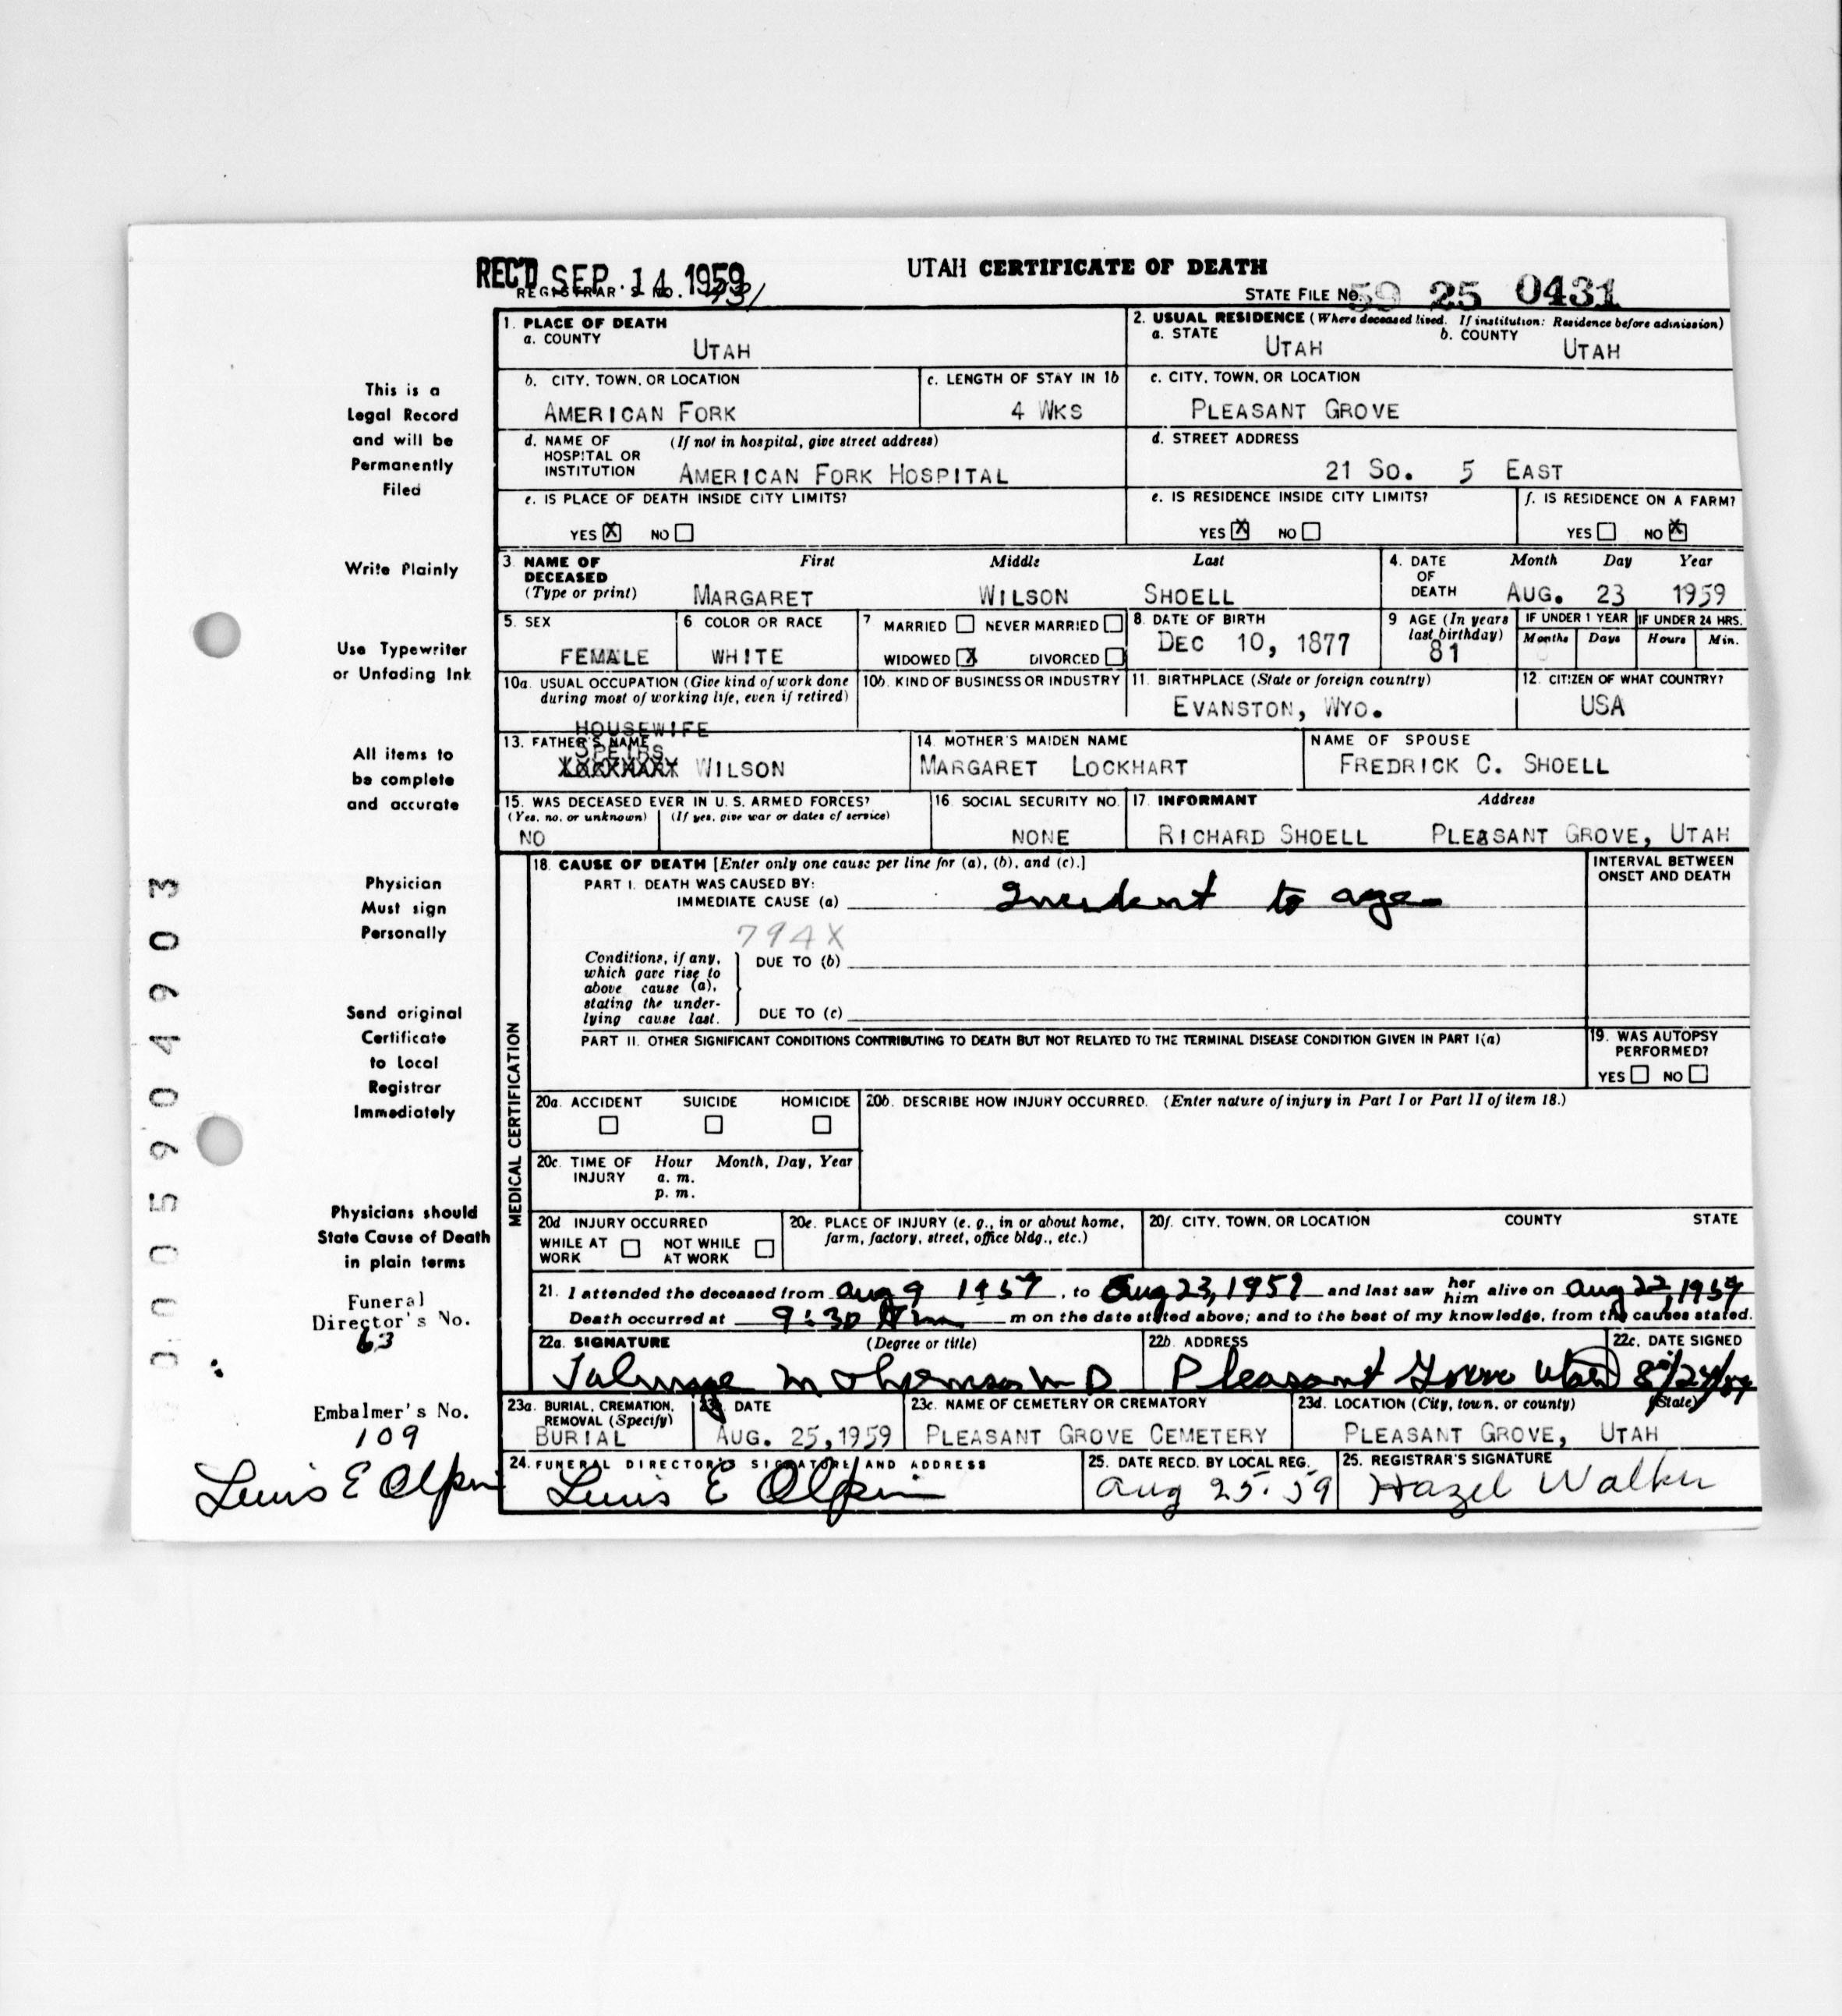 REC'D SEP. 14 1959
UTAH CERTIFICATE OF DEATH
REGISTRAR'S NO.
STATE FILE NO. 59 25 0431
1. PLACE OF DEATH
a. COUNTY
UTAH
2. USUAL RESIDENCE (Where deceased lived. If institution: Residence before admission)
a. STATE b. COUNTY
UTAH UTAH
b. CITY, TOWN, OR LOCATION
AMERICAN FORK
c. LENGTH OF STAY IN 1b
4 WKS
c. CITY, TOWN, OR LOCATION
PLEASANT GROVE
d. NAME OF (If not in hospital, give street address)
HOSPITAL OR
INSTITUTION AMERICAN FORK HOSPITAL
d. STREET ADDRESS
21 SO. 5 EAST
e. IS PLACE OF DEATH INSIDE CITY LIMITS?
YES X NO
e. IS RESIDENCE INSIDE CITY LIMITS?
YES X NO
f. IS RESIDENCE ON A FARM?
YES NO X
3. NAME OF First Middle Last
DECEASED
(Type or print) MARGARET WILSON SHOELL
4. DATE Month Day Year
OF
DEATH AUG. 23 1959
5. SEX
FEMALE
6 COLOR OR RACE
WHITE
7 MARRIED NEVER MARRIED
WIDOWED X DIVORCED
8. DATE OF BIRTH
DEC 10, 1877
9 AGE (In years
last birthday)
81
IF UNDER 1 YEAR IF UNDER 24 HRS.
Months Days Hours Min.
10a. USUAL OCCUPATION (Give kind of work done
during most of working life, even if retired)
HOUSEWIFE
10b. KIND OF BUSINESS OR INDUSTRY
11. BIRTHPLACE (State or foreign country)
EVANSTON, WYO.
12. CITIZEN OF WHAT COUNTRY?
USA
13. FATHER'S NAME
SPEIRS
LOCKHART WILSON
14. MOTHER'S MAIDEN NAME
MARGARET LOCKHART
NAME OF SPOUSE
FREDRICK C. SHOELL
15. WAS DECEASED EVER IN U. S. ARMED FORCES?
(Yes, no, or unknown) (If yes, give war or dates of service)
NO
16. SOCIAL SECURITY NO.
NONE
17. INFORMANT Address
RICHARD SHOELL PLEASANT GROVE, UTAH
18. CAUSE OF DEATH [Enter only one cause per line for (a), (b), and (c).]
INTERVAL BETWEEN
ONSET AND DEATH
PART I. DEATH WAS CAUSED BY:
IMMEDIATE CAUSE (a) Incident to age
794X
Conditions, if any,
which gave rise to
above cause (a),
stating the under-
lying cause last.
DUE TO (b)
DUE TO (c)
PART II. OTHER SIGNIFICANT CONDITIONS CONTRIBUTING TO DEATH BUT NOT RELATED TO THE TERMINAL DISEASE CONDITION GIVEN IN PART I(a)
19. WAS AUTOPSY
PERFORMED?
YES NO
MEDICAL CERTIFICATION
20a. ACCIDENT SUICIDE HOMICIDE
20b. DESCRIBE HOW INJURY OCCURRED. (Enter nature of injury in Part I or Part II of item 18.)
20c. TIME OF Hour Month, Day, Year
INJURY a. m.
p. m.
20d INJURY OCCURRED
WHILE AT NOT WHILE
WORK AT WORK
20e. PLACE OF INJURY (e. g., in or about home,
farm, factory, street, office bldg., etc.)
20f. CITY, TOWN, OR LOCATION COUNTY STATE
21. I attended the deceased from Aug 9 1959, to Aug 23, 1959 and last saw her him alive on Aug 22, 1959
Death occurred at 9:30 A m m on the date stated above; and to the best of my knowledge, from the causes stated.
22a. SIGNATURE (Degree or title)
Talmage M D
22b. ADDRESS
Pleasant Grove Utah
22c. DATE SIGNED
8/24/59
23a. BURIAL, CREMATION,
REMOVAL (Specify)
BURIAL
23b. DATE
AUG. 25, 1959
23c. NAME OF CEMETERY OR CREMATORY
PLEASANT GROVE CEMETERY
23d. LOCATION (City, town, or county) (State)
PLEASANT GROVE, UTAH
24. FUNERAL DIRECTOR'S SIGNATURE AND ADDRESS
Lewis E Olpin
25. DATE RECD. BY LOCAL REG.
Aug 25. 59
25. REGISTRAR'S SIGNATURE
Hazel Walker
This is a
Legal Record
and will be
Permanently
Filed
Write Plainly
Use Typewriter
or Unfading Ink
All items to
be complete
and accurate
Physician
Must sign
Personally
Send original
Certificate
to Local
Registrar
Immediately
Physicians should
State Cause of Death
in plain terms
Funeral
Director's No.
63
Embalmer's No.
109
Lewis E Olpin
0005904903